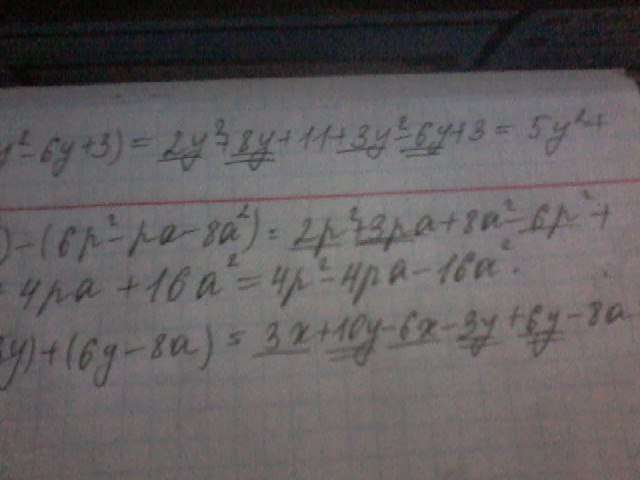 y²-6y+3) = 2y²+8y+11+3y²-6y+3 = 5y²+
)-(6p²-pa-8a²) = 2p²+3pa+8a²-6p²+
4pa+16a² = 4p²-4pa-16a².
y)+(6y-8a) = 3x+10y-6x-3y+6y-8a